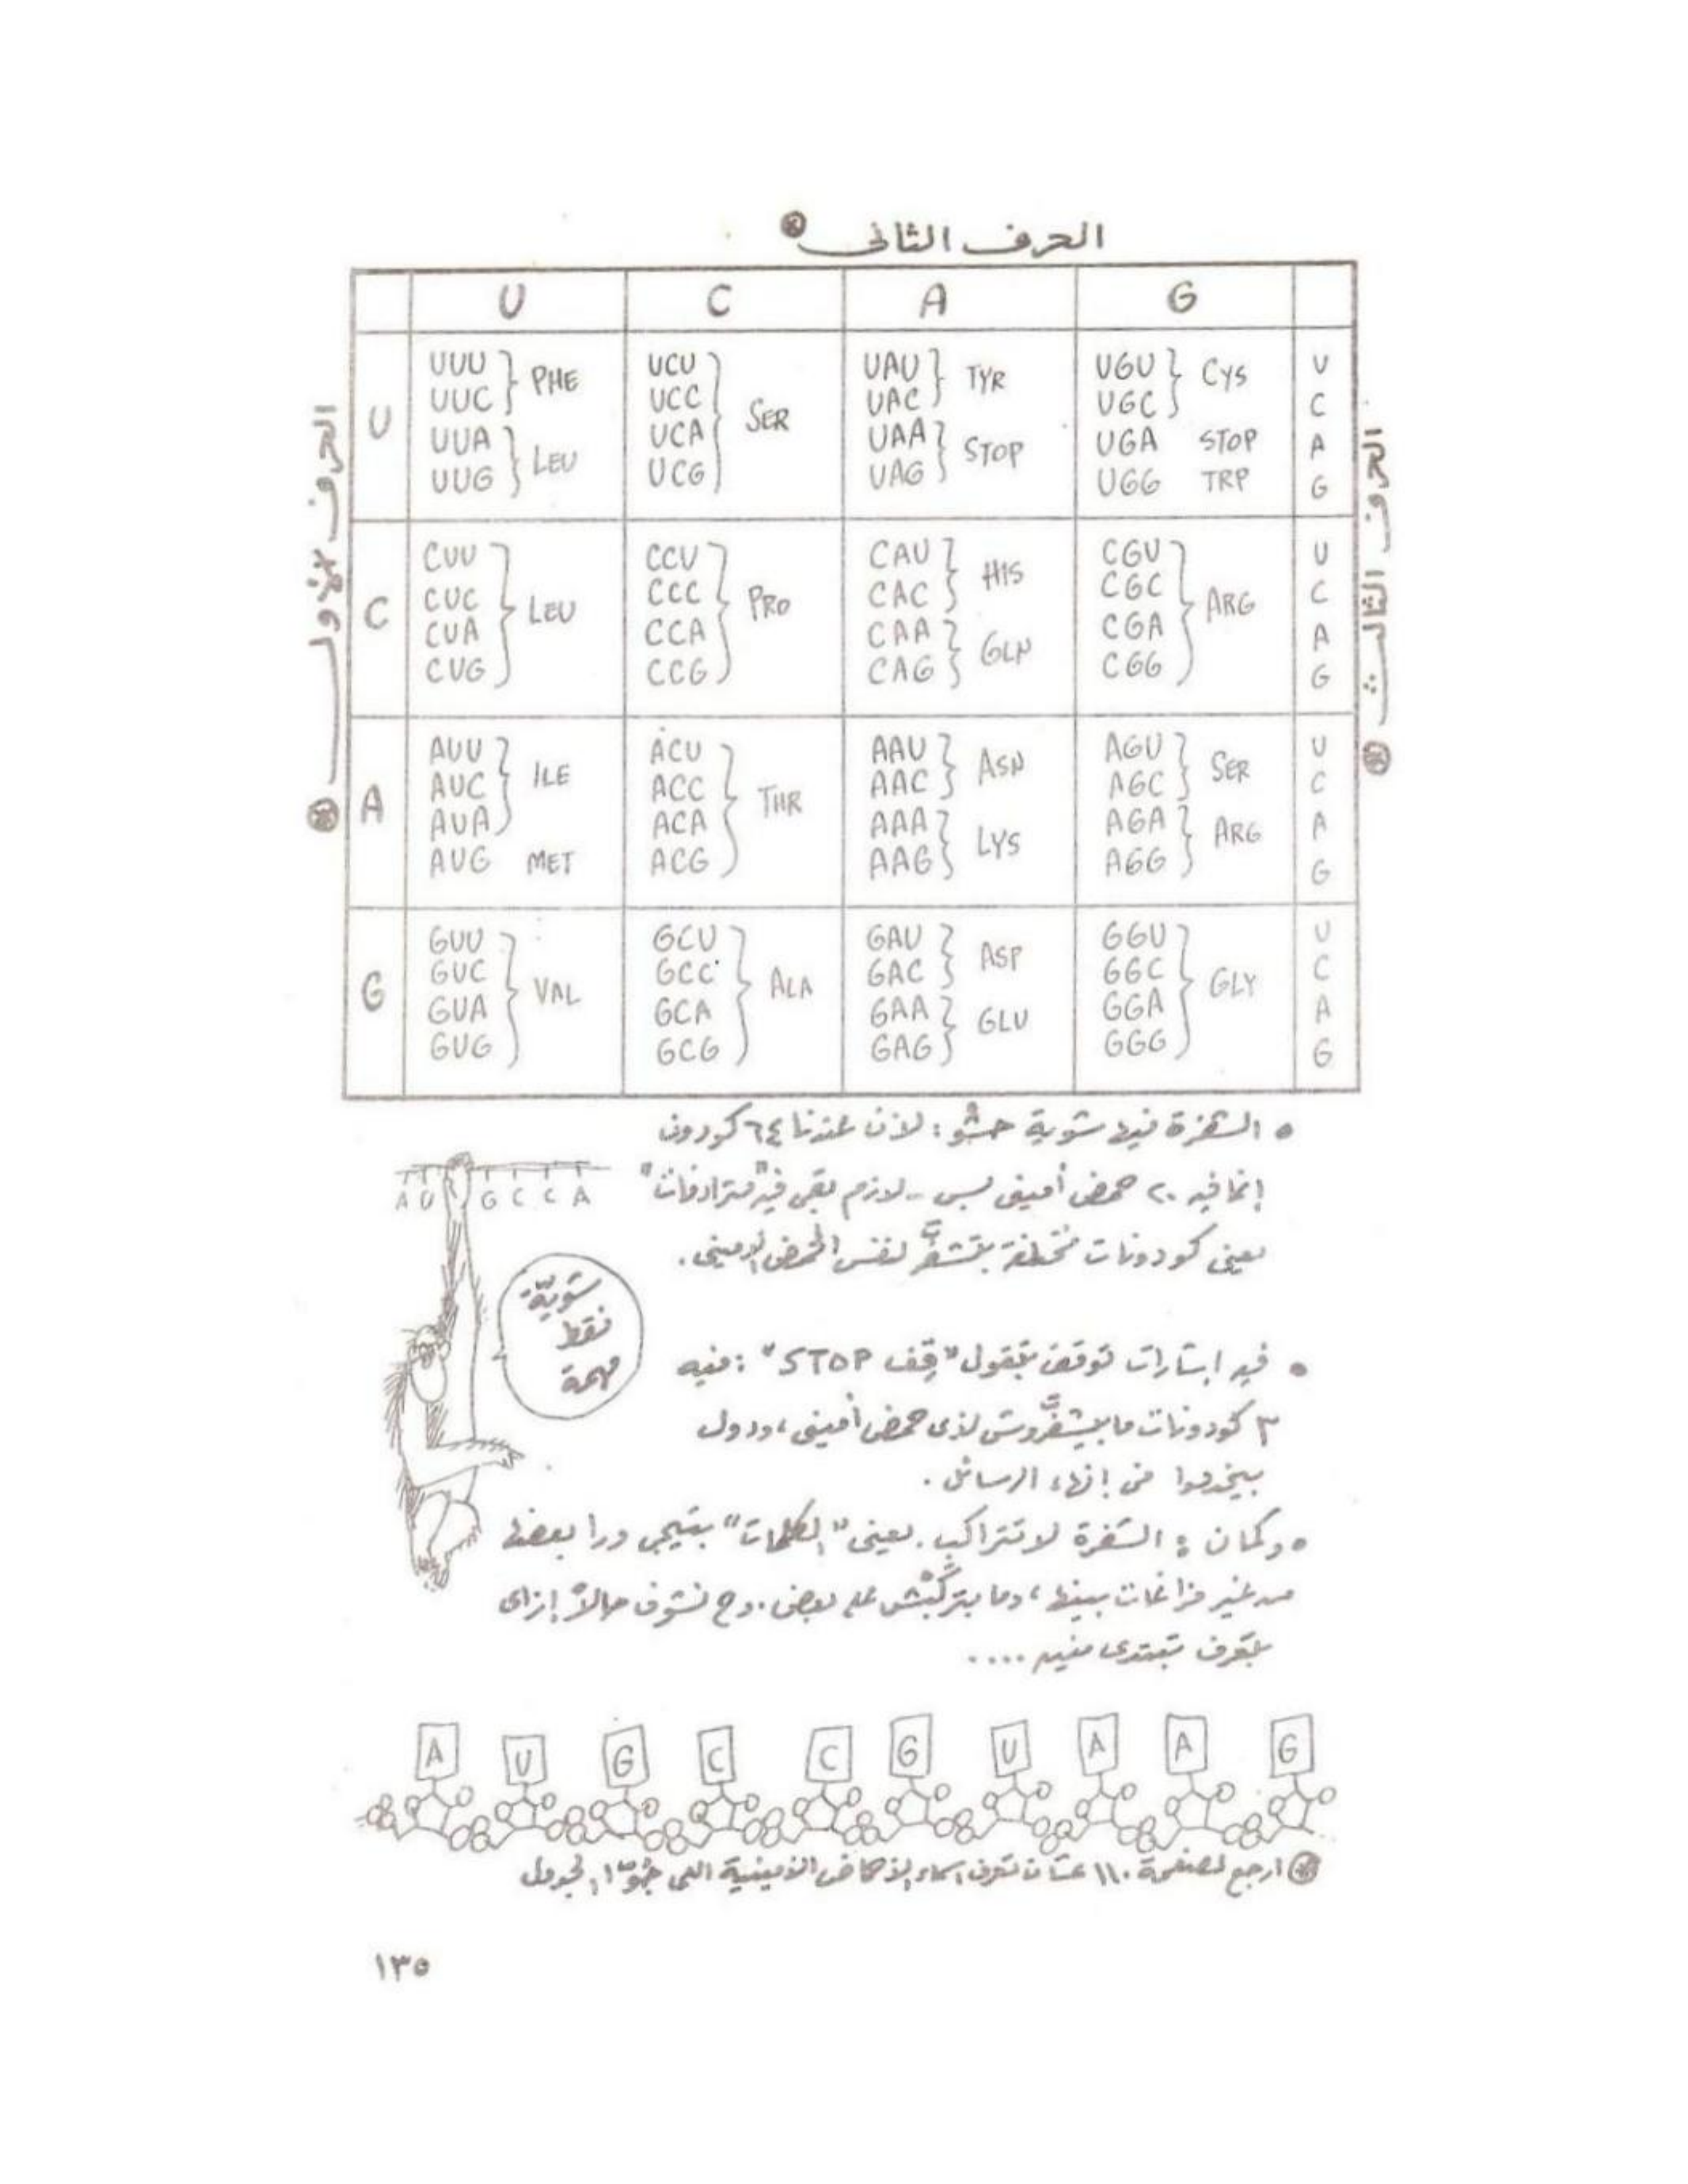 الحرف الثانى
U C A G
الحرف الأول
الحرف الثالث
U
UUU UUC } PHE
UUA UUG } LEU
UCU UCC UCA UCG } SER
UAU UAC } TYR
UAA UAG } STOP
UGU UGC } CYS
UGA STOP
UGG TRP
U C A G
C
CUU CUC CUA CUG } LEU
CCU CCC CCA CCG } PRO
CAU CAC } HIS
CAA CAG } GLN
CGU CGC CGA CGG } ARG
U C A G
A
AUU AUC AUA } ILE
AUG MET
ACU ACC ACA ACG } THR
AAU AAC } ASN
AAA AAG } LYS
AGU AGC } SER
AGA AGG } ARG
U C A G
G
GUU GUC GUA GUG } VAL
GCU GCC GCA GCG } ALA
GAU GAC } ASP
GAA GAG } GLU
GGU GGC GGA GGG } GLY
U C A G
• الشفرة فيها شوية حشو: لأن عندنا ٦٤ كودون
إنما فيه ٢٠ حمض أمينى بس .. لازم يبقى فيه "مترادفات"
يعنى كودونات مختلفة بتشفّر لنفس الحمض الأمينى.
A U G C C A
شويّة
نقط
مهمة
• فيه إشارات توقف بتقول "قِف STOP": فيه
٣ كودونات ما بيشفّروش لأى حمض أمينى، ودول
بيخدموا فى إنهاء الرسائل.
• وكمان: الشفرة لا تتراكب. يعنى "الكلمات" بتيجى ورا بعضها
من غير فراغات بينها، وما بتركبش على بعض. وح نشوف حالاً إزاى
بتعرف تبتدى منين ....
A U G C C G U A A G
ارجع لصفحة ١١٠ عشان تعرف أسماء الأحماض الأمينية اللى جُوّا الجدول
١٣٥